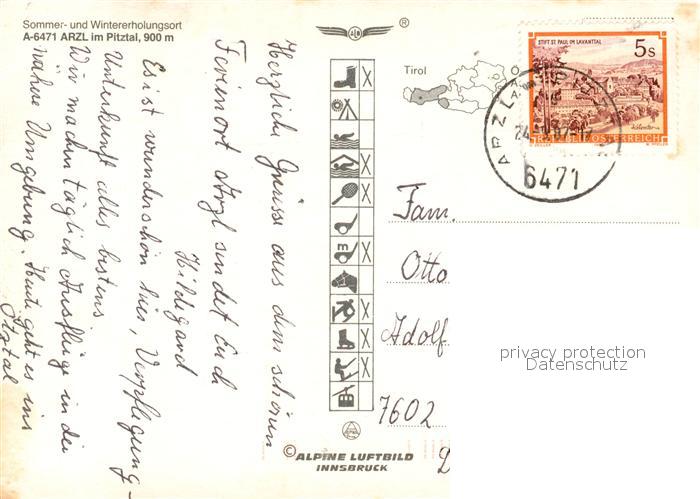 Sommer- und Wintererholungsort
A-6471 ARZL im Pitztal, 900 m
®
Tirol
Ö
STIFT ST. PAUL IM LAVANTTAL
5 s
REPUBLIK ÖSTERREICH
ARZL
6471
Herzliche Grüsse aus dem schönen
Ferienort Arzl sendet Euch
Hildegard
Es ist wunderschön hier, Verpflegung-
Unterkunft alles bestens
Wir machen täglich Ausflug in die
nähere Umgebung. Heute geht es ins
Fam.
Otto
Adolf
7602
privacy protection
Datenschutz
© ALPINE LUFTBILD
INNSBRUCK